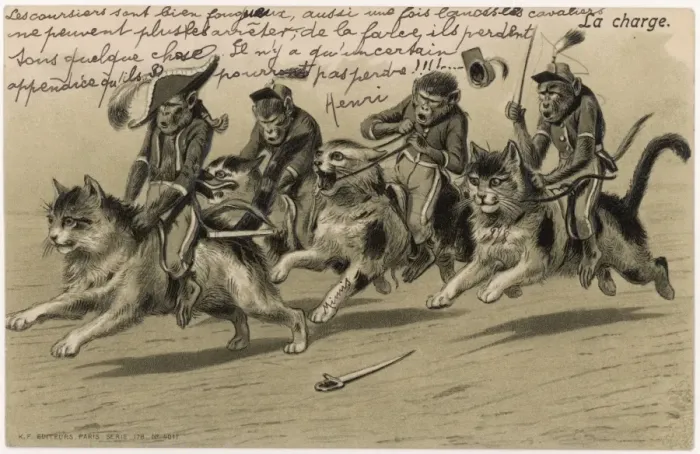 La charge.
Les coursiers sont bien fougueux, aussi une fois lancés les cavaliers
ne peuvent plus les arrêter, de la farce, ils perdent
tous quelque chose, Il n'y a qu'un certain
appendice qu'ils pourront pas perdre !!!!...
Henri
Mimis
K.F. EDITEURS PARIS SERIE 178